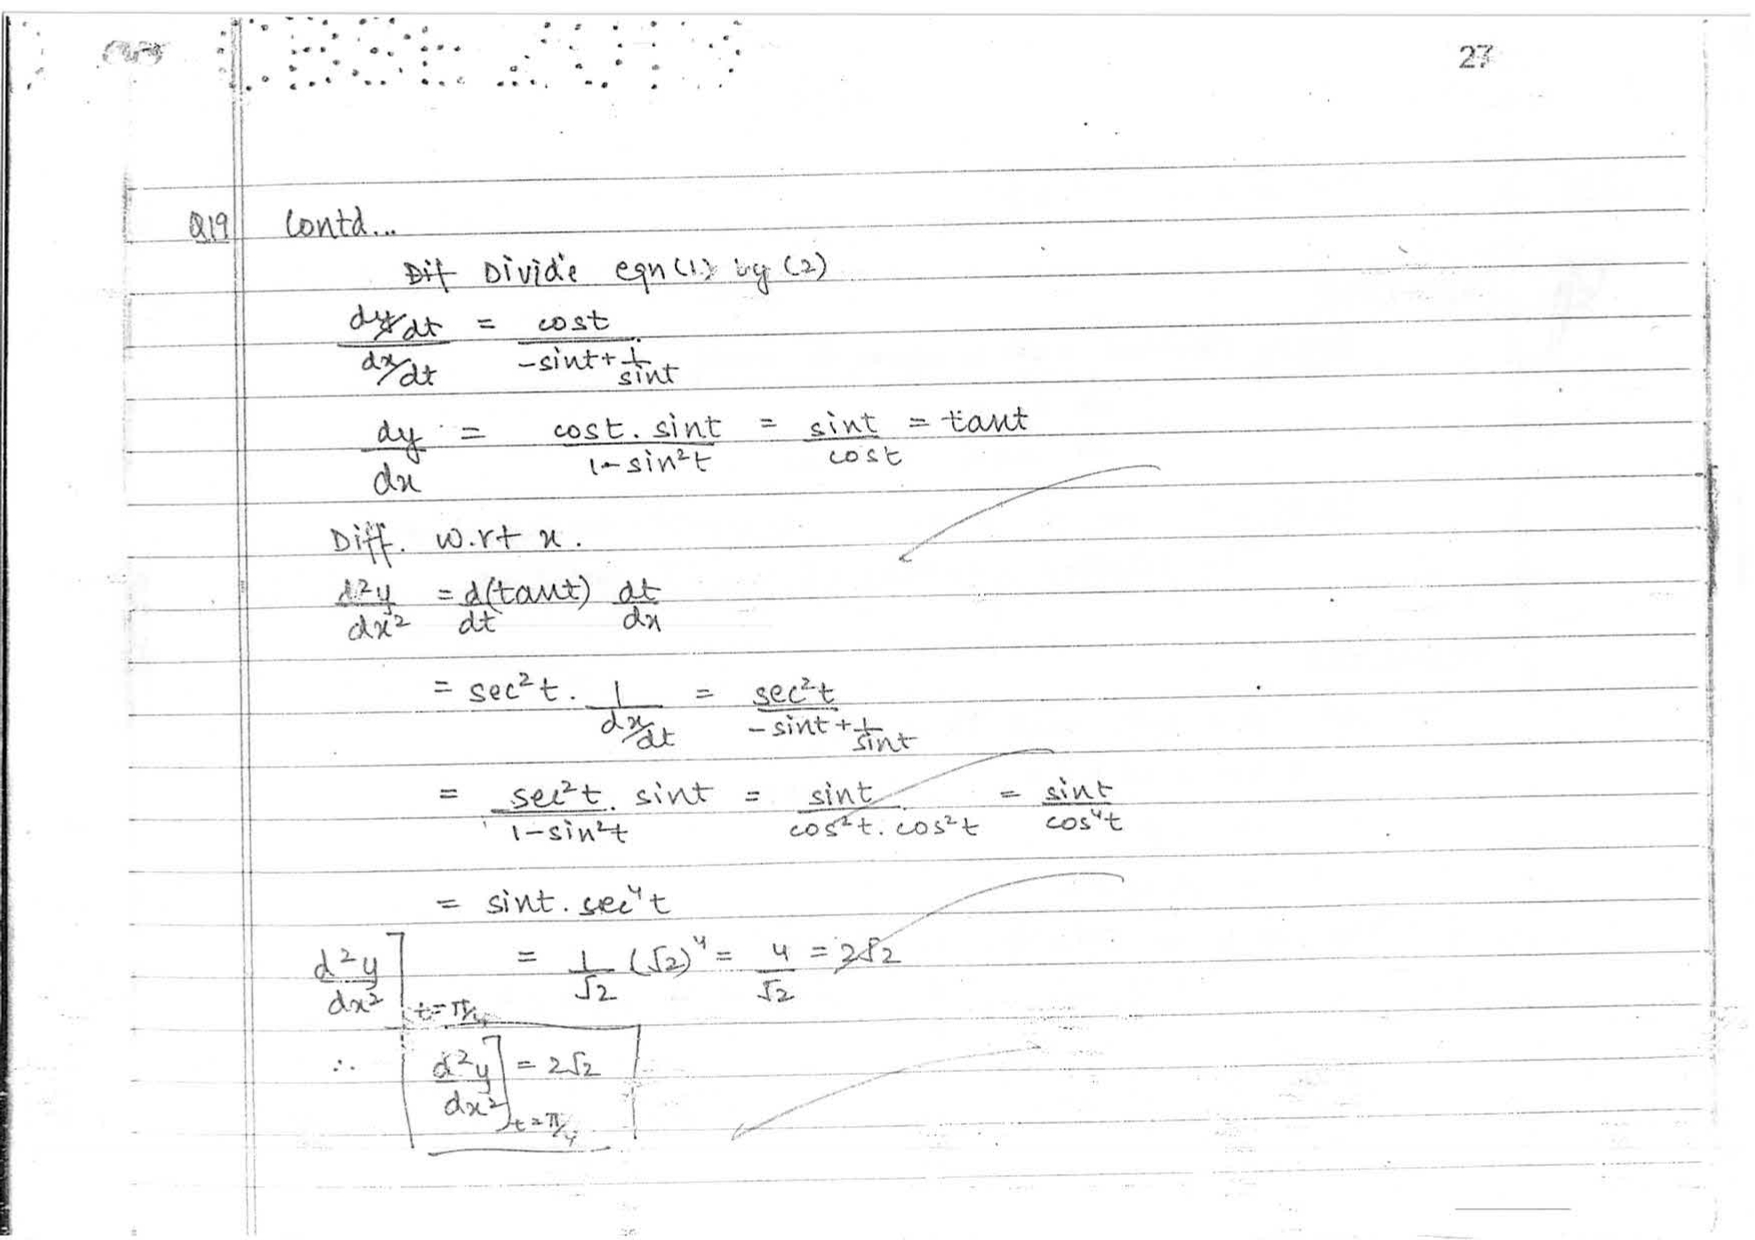 27
Q19 Contd...
Dif Divide eqn (1) by (2)
dy/dt / dx/dt = cost / -sint + 1/sint
dy/dx = cost. sint / 1-sin²t = sint / cost = tant
Diff. w.rt x.
d²y/dx² = d(tant)/dt dt/dx
= sec²t . 1 / dx/dt = sec²t / -sint + 1/sint
= sec²t. sint / 1-sin²t = sint / cos²t. cos²t = sint / cos⁴t
= sint. sec⁴t
d²y/dx²]t=π/4 = 1/√2 (√2)⁴ = 4/√2 = 2√2
∴ d²y/dx²]t=π/4 = 2√2